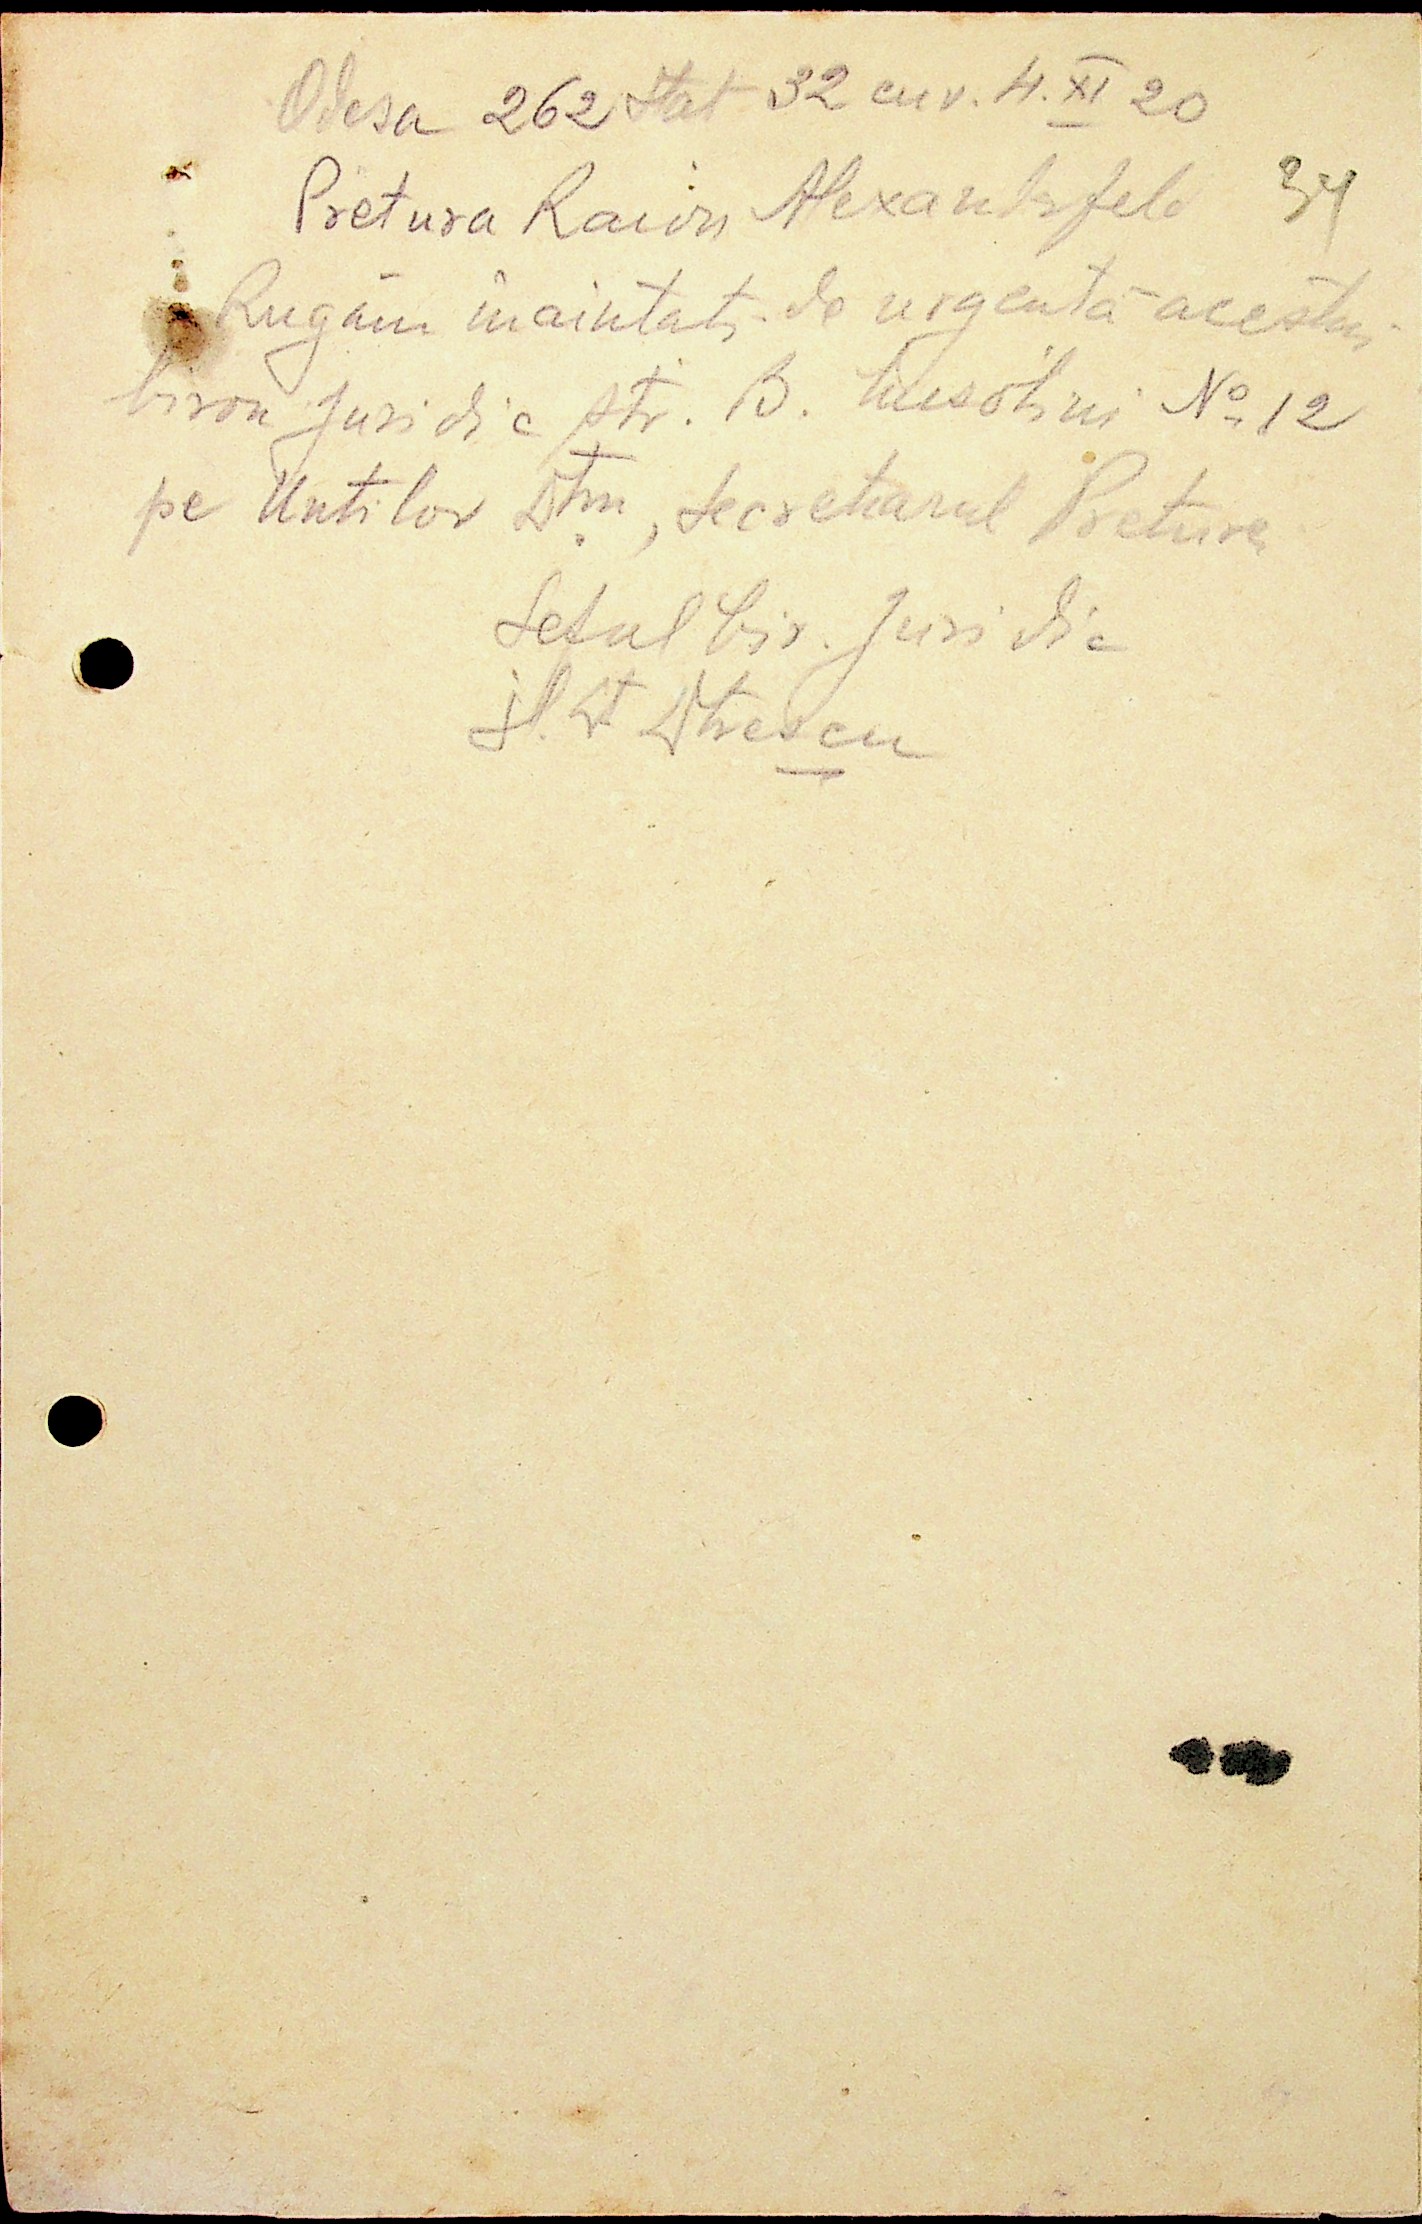 Odesa 262 Stat 32 cuv. 4. XI 20
Pretura Raion Alexanderfeld 34
Rugăm înaintați de urgență acestui
birou Juridic str. B. Musolini No 12
pe Untilov Dtru, Secretarul Preturei
Seful bir. Juridic
Dtrescu